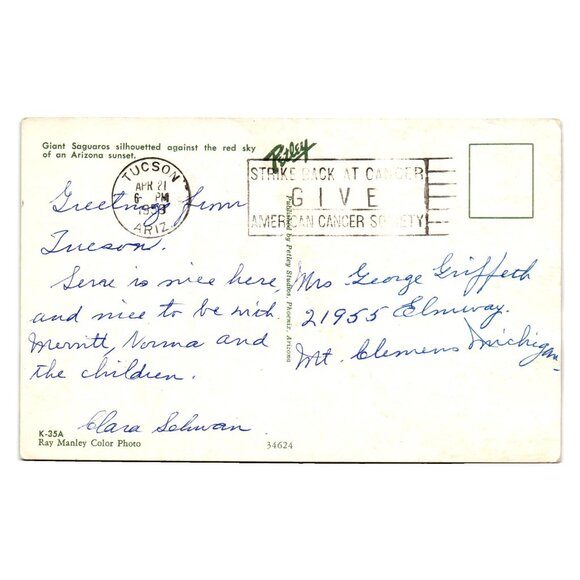 Giant Saguaros silhouetted against the red sky
of an Arizona sunset.
Petley
TUCSON
APR 21
6- PM
1959
ARIZ.
STRIKE BACK AT CANCER
GIVE
AMERICAN CANCER SOCIETY
Greetings from
Tucson.
is nice here,
and nice to be with
Merritt, Norma and
the children.
Clara Schwan
Published by Petley Studios, Phoenix, Arizona
Mrs George Griffeth
21955 Elmway.
Mt. Clemens Michigan
K-35A
Ray Manley Color Photo
34624